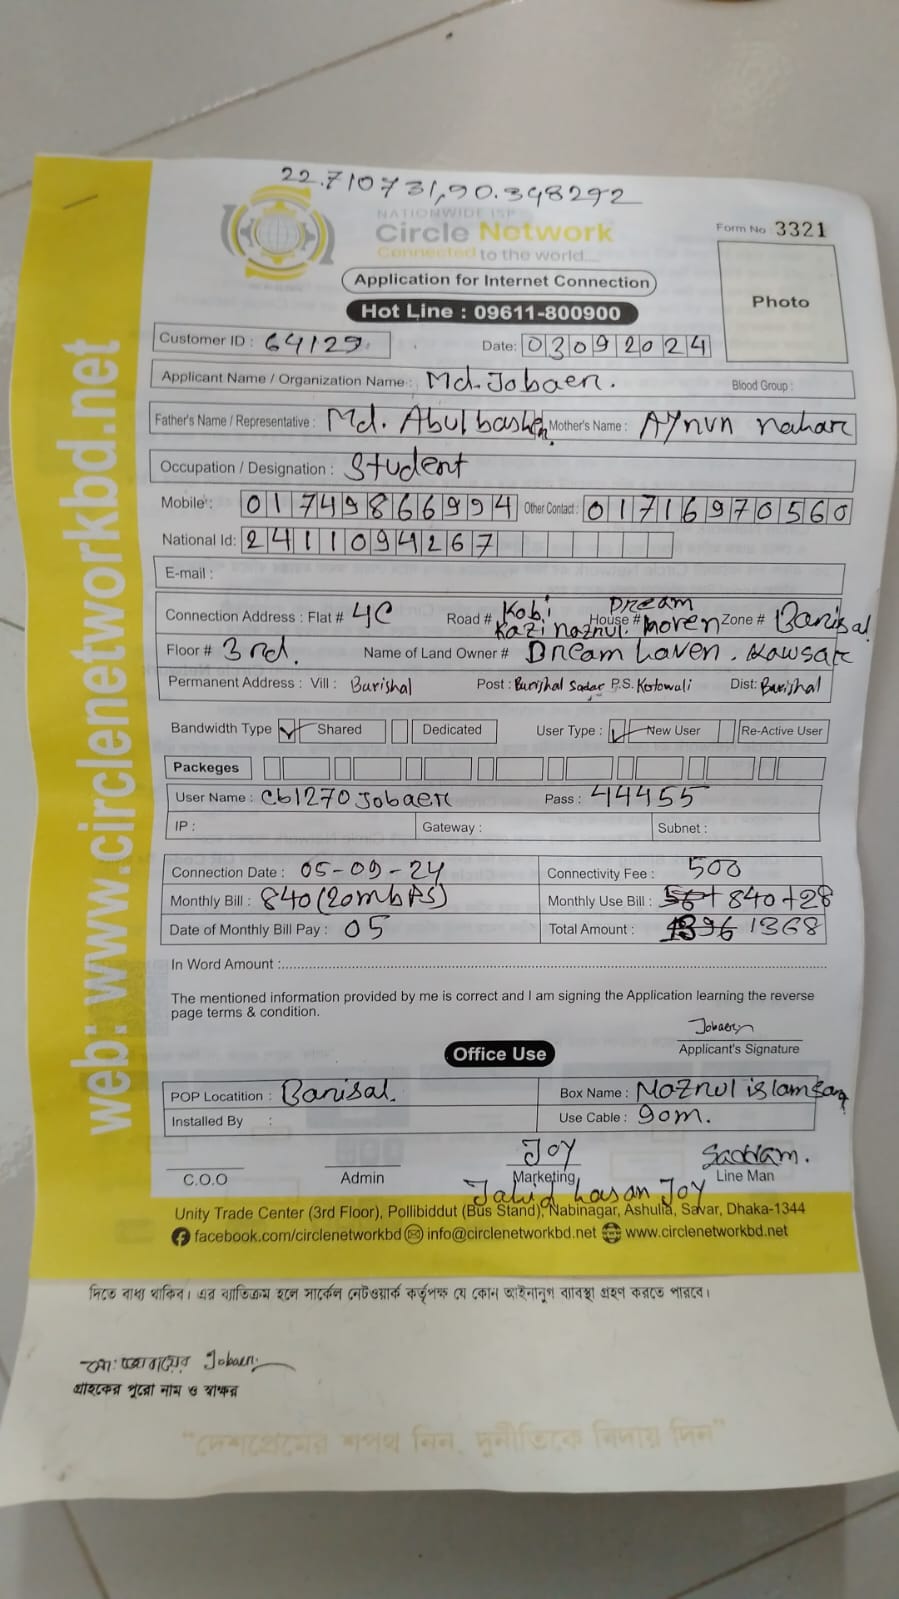 22.710731,90.348292
NATIONWIDE ISP
Circle Network
Connected to the world....
Form No 3321
Photo
Application for Internet Connection
Hot Line : 09611-800900
Customer ID : 64129. Date: 03092024
Applicant Name / Organization Name : Md. Jobaer. Blood Group :
Father's Name / Representative : Md. Abul basher Mother's Name : AYnun nahar
Occupation / Designation : Student
Mobile : 01749866994 Other Contact : 01716970560
National Id: 2411094267
E-mail :
Connection Address : Flat # 4C Road # Kobi Kazi naznul. House # Dream Zone # Barisal
Floor # 3rd. Name of Land Owner # Dream haven. Kawsar
Permanent Address : Vill : Barishal Post : Barishal Sadar P.S. Kotowali Dist: Barishal
Bandwidth Type Shared Dedicated User Type : New User Re-Active User
Packeges
User Name : cb1270Jobaer Pass : 44455
IP : Gateway : Subnet :
Connection Date : 05-09-24 Connectivity Fee : 500
Monthly Bill : 840(20mbPS) Monthly Use Bill : 840+28
Date of Monthly Bill Pay : 05 Total Amount : 1368
In Word Amount :
The mentioned information provided by me is correct and I am signing the Application learning the reverse
page terms & condition.
Jobaer
Applicant's Signature
Office Use
POP Locatition : Barisal. Box Name : Noznul islam
Installed By : Use Cable : 90m.
Joy Saddam.
C.O.O Admin Marketing Line Man
Jahid hasan Joy
Unity Trade Center (3rd Floor), Pollibiddut (Bus Stand), Nabinagar, Ashulia, Savar, Dhaka-1344
facebook.com/circlenetworkbd info@circlenetworkbd.net www.circlenetworkbd.net
web: www.circlenetworkbd.net
দিতে বাধ্য থাকিব। এর ব্যতিক্রম হলে সার্কেল নেটওয়ার্ক কর্তৃপক্ষ যে কোন আইনানুগ ব্যাবস্থা গ্রহণ করতে পারবে।
মো: জোবায়ের Jobaer
গ্রাহকের পুরো নাম ও স্বাক্ষর
"দেশপ্রেমের শপথ নিন, দুর্নীতিকে বিদায় দিন"